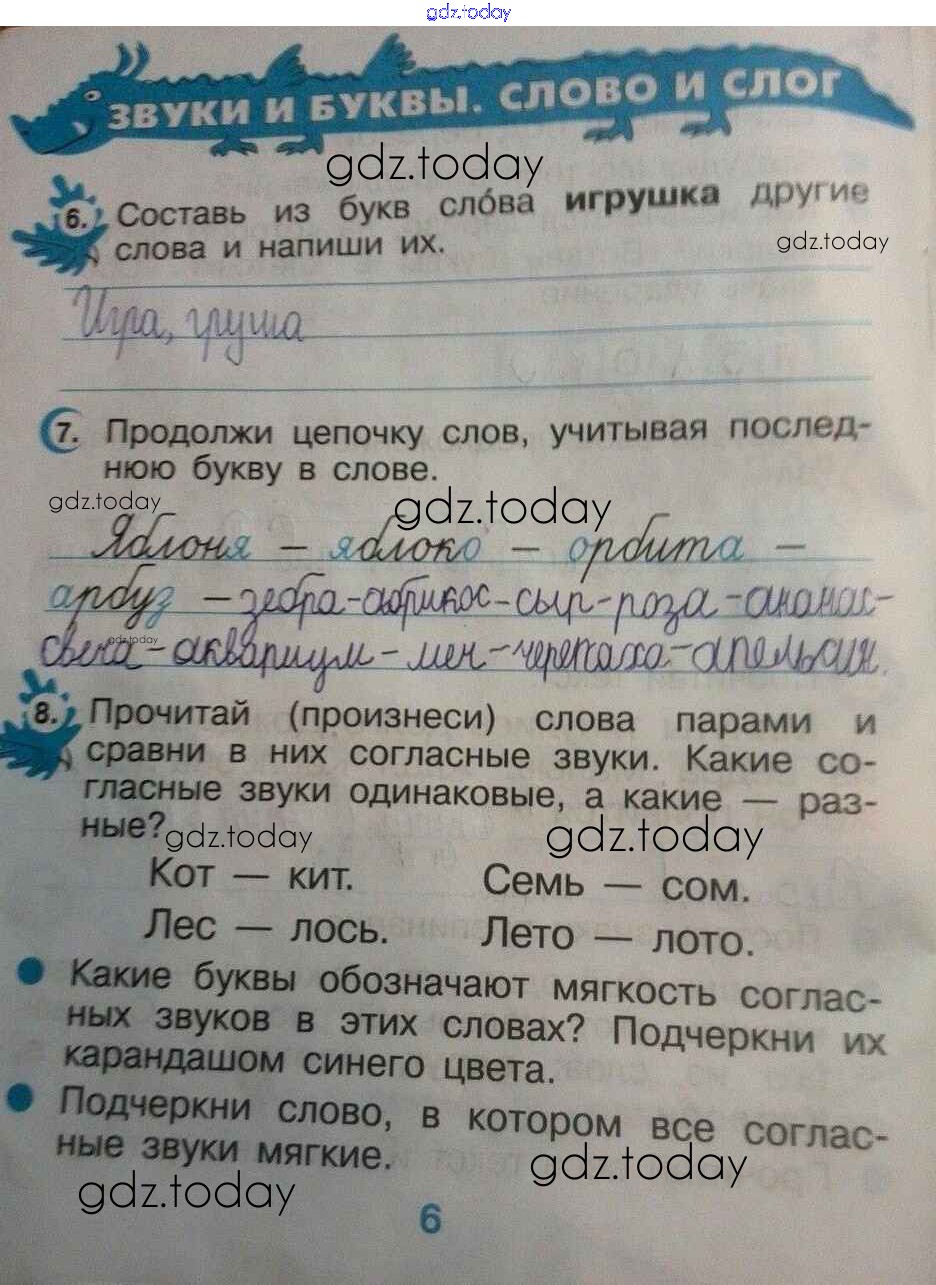 gdz.today
ЗВУКИ И БУКВЫ. СЛОВО И СЛОГ
gdz.today
6. Составь из букв сло́ва игрушка другие
слова и напиши их.
gdz.today
Игра, груша
7. Продолжи цепочку слов, учитывая послед-
нюю букву в слове.
gdz.today
gdz.today
Яблоня – яблоко – орбита –
арбуз – зебра-абрикос-сыр-роза-ананас-
свеча-аквариум-меч-черепаха-апельсин.
gdz.today
8. Прочитай (произнеси) слова парами и
сравни в них согласные звуки. Какие со-
гласные звуки одинаковые, а какие — раз-
ные?
gdz.today
gdz.today
Кот — кит. Семь — сом.
Лес — лось. Лето — лото.
Какие буквы обозначают мягкость соглас-
ных звуков в этих словах? Подчеркни их
карандашом синего цвета.
Подчеркни слово, в котором все соглас-
ные звуки мягкие.
gdz.today
gdz.today
6